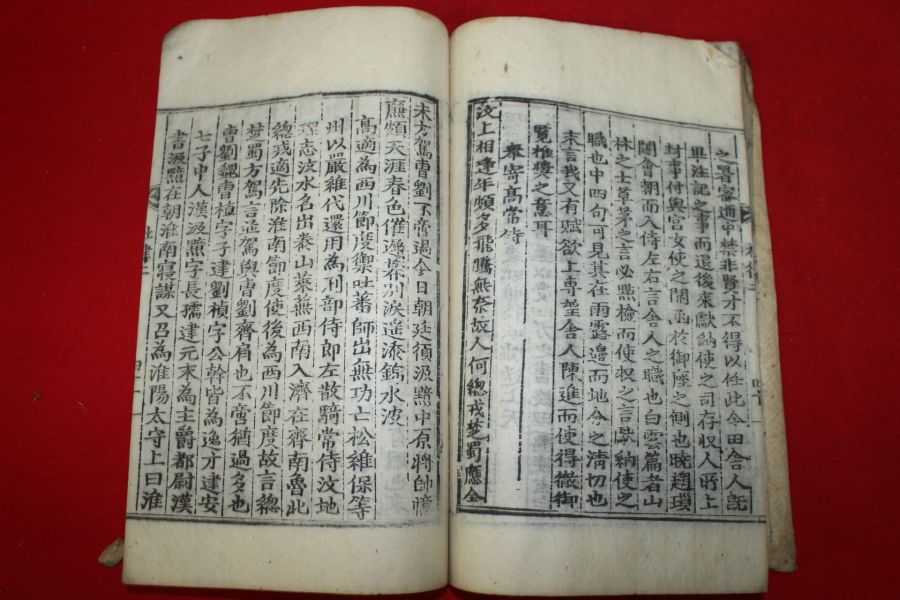 之署密邇中禁非賢才不得以任此今田舍人旣
畢注記之事而退後來獻納使之司存収人所上
封事付與宮女使之開函於御座之側也晩趨瑣
闈會朝而入侍左右言舍人之職也白雲篇者山
林之士草茅之言必點檢而使収之言獻納使之
職也中四句可見其在雨露邊而地今之淸切也
末言我又有賦欲上專望舍人陳進而使得徹御
覽推奬之意耳
奉寄高常侍
汶上相逢年頗多飛騰無奈故人何總戎楚蜀應全
未方駕曹劉不啻過今日朝廷須汲黯中原將帥憶
廉頗天涯春色催遲暮別淚遥添錦水波
高適為西川節度禦吐蕃師出無功亡松維保等
州以嚴維代還用為刑部侍郎左散騎常侍汶地
理志汶水名出泰山萊蕪西南入濟在齊南魯北
總戎適先除淮南節度使後為西川節度故言總
楚蜀方駕言並駕與曹劉齊肩也不啻猶過多也
曹劉魏曹植字子建劉楨字公幹皆為逸才建安
七子中人漢汲黯字長孺建元末為主爵都尉漢
書汲黯在朝淮南寢謀又召為淮陽太守上曰淮
杜律二